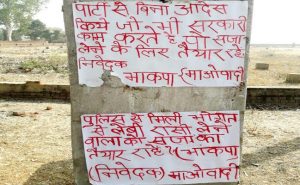 पार्टी से बिना आदेस
किये जो भी सरकारी
काम करते है वो सजा
लेने के लिए तैयार रहे
निवेदक
भाकपा (माओवादी)
पुलिस से मिली
से लेवी रासी लेने
वाला को सजा का
तैयार रहे भाकपा
(निवेदक) माओवादी